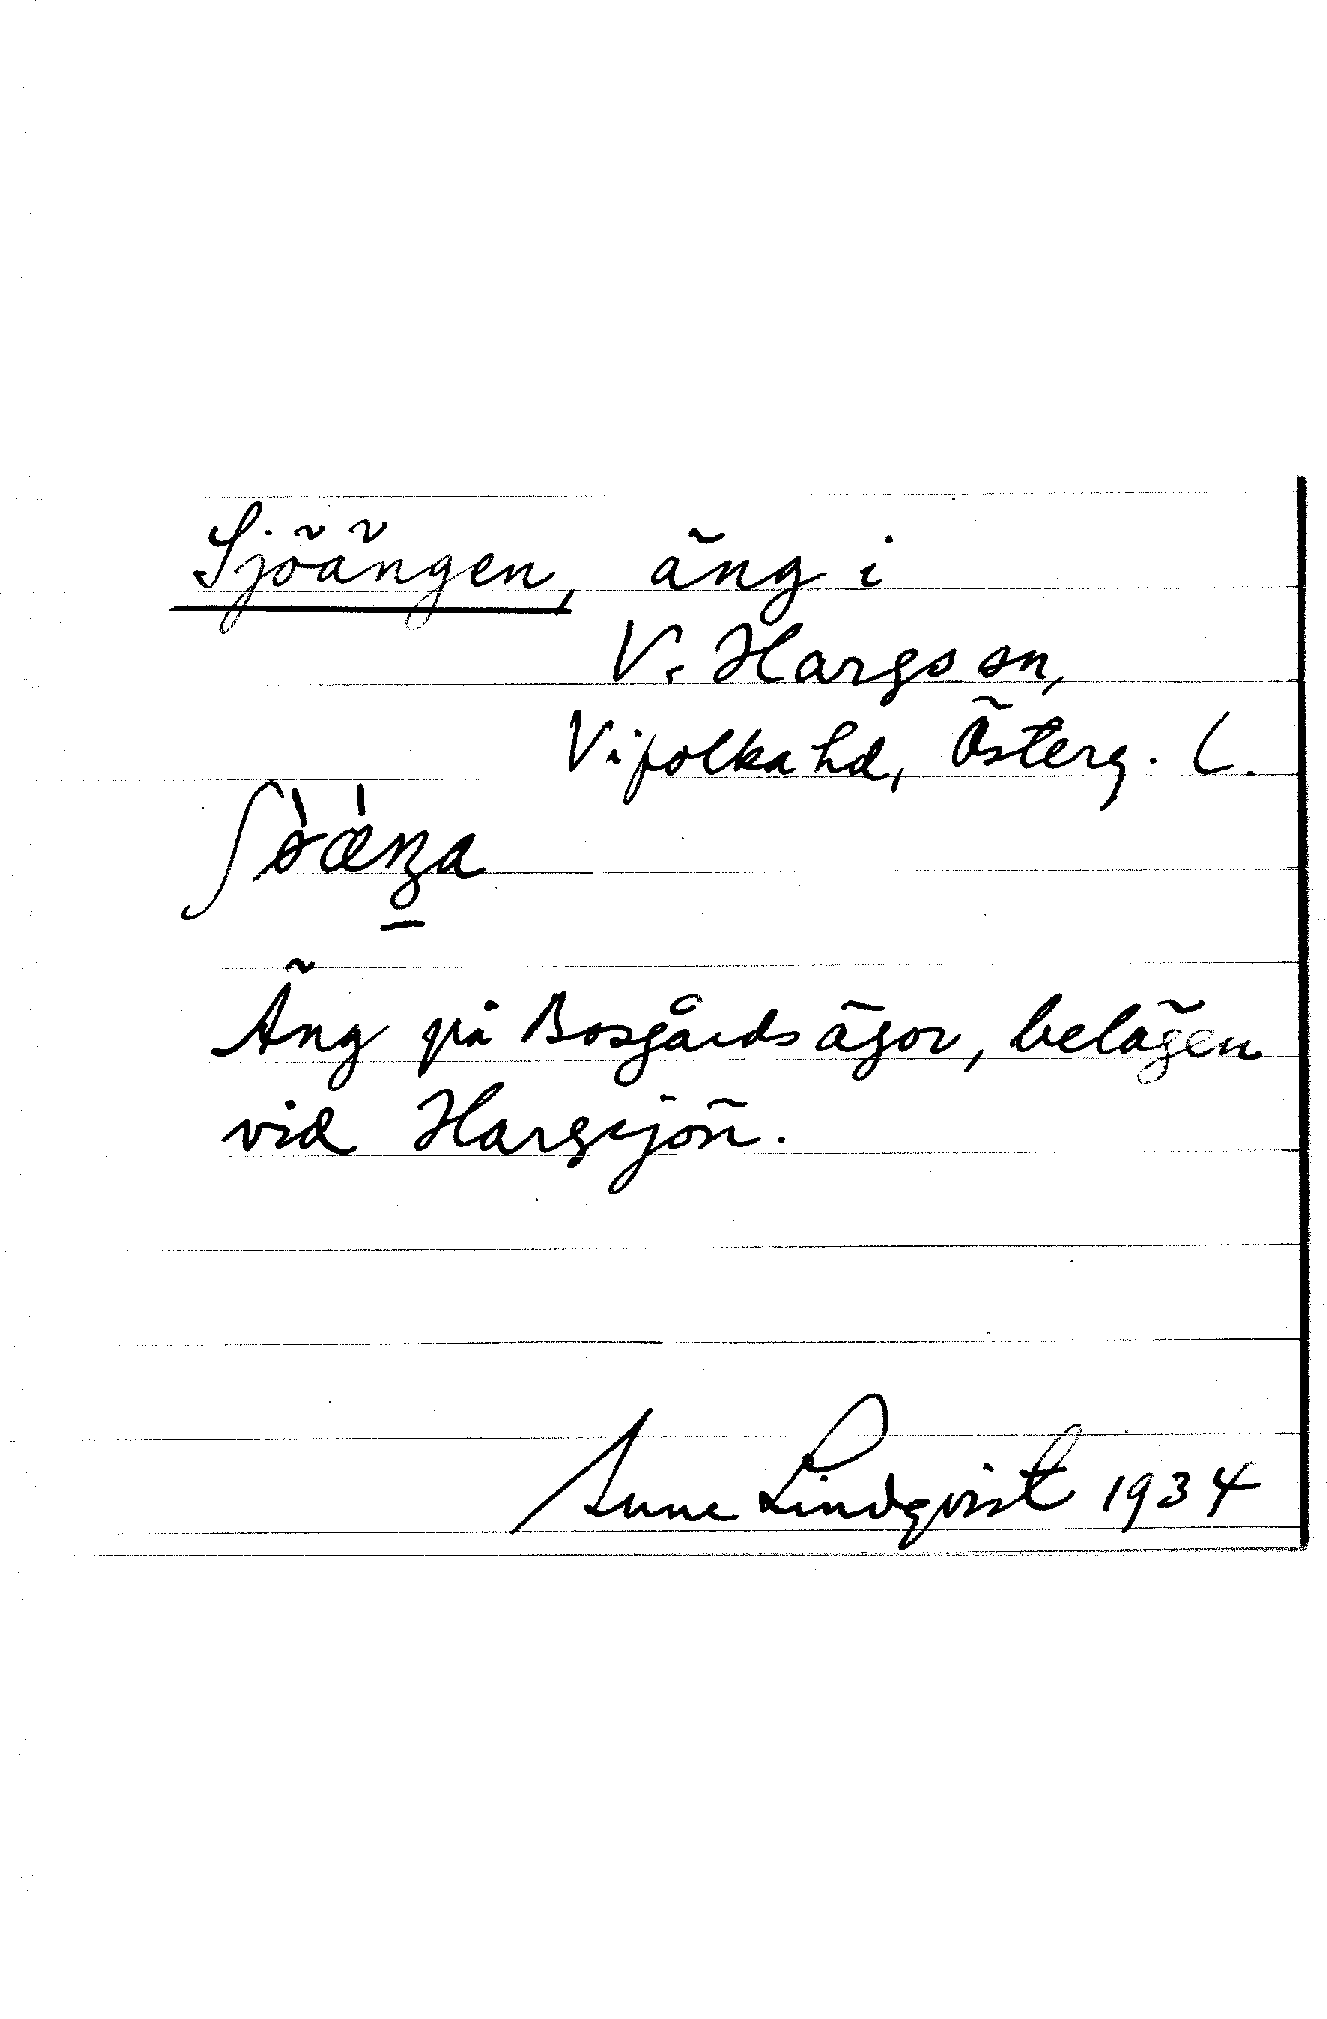 Sjöängen, äng i
V. Hargs sn,
Vifolka hd, Österg. L.
Äng på Bosgårds ägor, belägen
vid Hargsjön.
Sune Lindqvist 1934